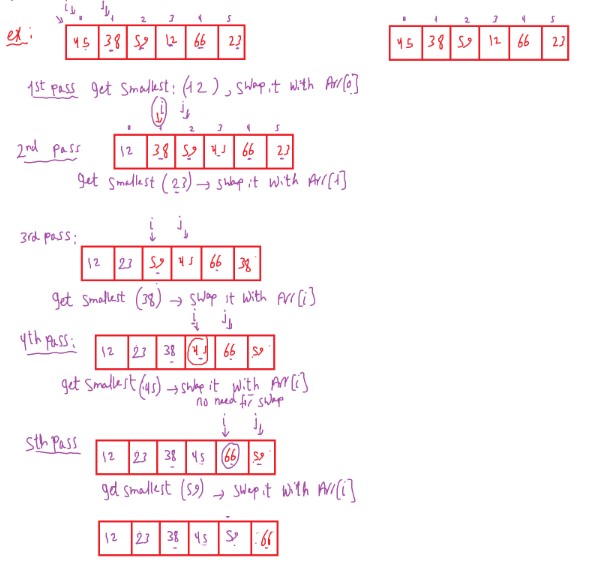 i j
0 1 2 3 4 5
ex: 45 38 59 12 66 23
0 1 2 3 4 5
45 38 59 12 66 23
1st pass get smallest: (12), swap it with Arr[0]
i j
0 1 2 3 4 5
2nd pass 12 38 59 45 66 23
get smallest (23) → swap it with Arr[1]
i j
3rd pass: 12 23 59 45 66 38
get smallest (38) → swap it with Arr[i]
i j
4th pass: 12 23 38 45 66 59
get smallest (45) → swap it with Arr[i]
no need for swap
i j
5th pass 12 23 38 45 66 59
get smallest (59) → swap it with Arr[i]
12 23 38 45 59 66